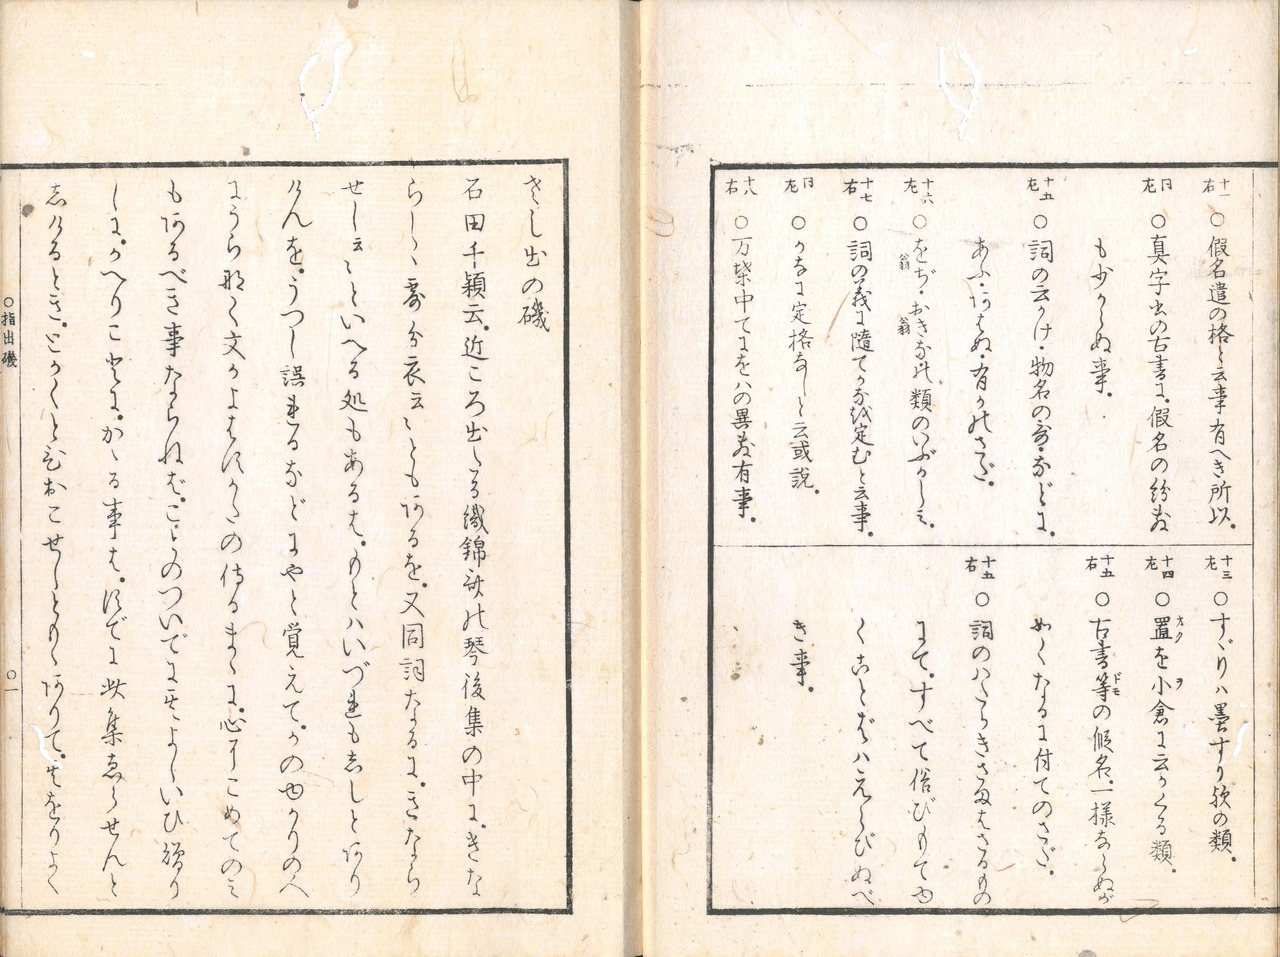 十一右 ○假名遣の格と云事有へき所以。
同左 ○真字出の古書に。假名の紛お
も少からぬ事。
十五左 ○詞の云かけ・物名の哥・などに。
あふ・あはぬ・有かのさだ。
十六左 ○をぢ・おきなの類のいぶかしミ。
翁 翁
十七右 ○詞の義に隨てかなを定むと云事。
同左 ○かなに定格なしと云或說。
十八右 ○万葉中てにをハの異お有事。
十三左 ○すゞりハ墨すり の類。
十四左 ○置を小倉に云かくる類。
オク ヲ
十五右 ○古書等の假名一様ならぬが
ドモ
如くなるに付てのさだ。
十五右 ○詞のはたらきさまはさるもの
にて。すべて俗びもてゆ
くことばハえらびぬべ
き事。
さし出の磯
石田千穎云。近ころ出たる織錦 の琴後集の中に。きな
らしゝ 衣云々ともあるを。又同詞なるに。きなら
せし云々といへる処もあるは。もとハいづれも志しとあり
けんを。うつし誤れるなどにやと覚えて。かのゆかりの人
にうら那く文かよはすかたの侍るまゝに。心しらこめてのミ
もあるべき事ならねば。こゝのついでにそよしいひ贈り
しに。かへりことに。かゝる事は。すでに此集ゑらせんと
志けるとき。とかくと だおこせしともあありて。 をりよく
○指出磯
○一